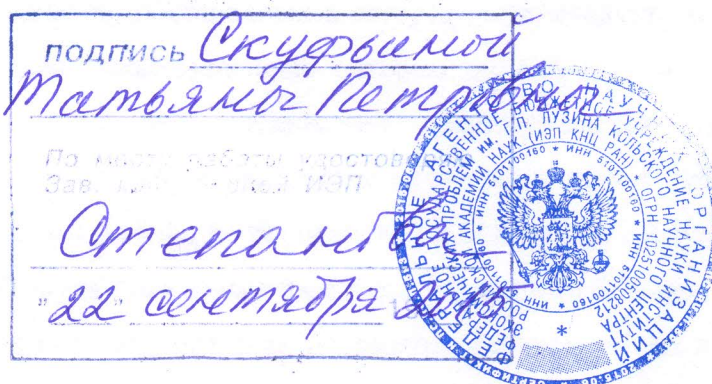 подпись Скуфьиной
Татьяны Петровны
По месту работы удостоверяю
Зав. ИЭП
Степанова
"22" сентября 2015
ФЕДЕРАЛЬНОЕ АГЕНТСТВО НАУЧНЫХ ОРГАНИЗАЦИЙ
ФЕДЕРАЛЬНОЕ ГОСУДАРСТВЕННОЕ БЮДЖЕТНОЕ УЧРЕЖДЕНИЕ НАУКИ ИНСТИТУТ
ЭКОНОМИЧЕСКИХ ПРОБЛЕМ ИМ. Г.П. ЛУЗИНА КОЛЬСКОГО НАУЧНОГО ЦЕНТРА
РОССИЙСКОЙ АКАДЕМИИ НАУК (ИЭП КНЦ РАН) * ОГРН 1025100508212
* ИНН 5101100160 * ИНН 5101100160 * ИНН 5101100160